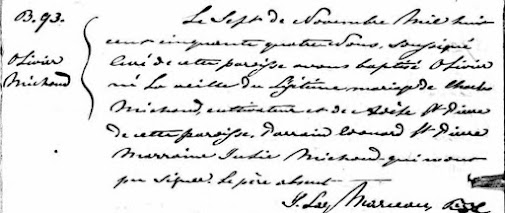 B. 93.
Olivier
Michaud
Le Sept de Novembre Mil huit
cent cinquante quatre Nous, Soussigné
Curé de cette paroisse avons baptisé Olivier
né La veille du Légitime mariage de Charles
Michaud, cultivateur et de Adèle St Pierre
de cette paroisse. Parrain Edouard St Pierre
Marraine Julie Michaud qui n'ont
pu signer. Le père absent
Marceau